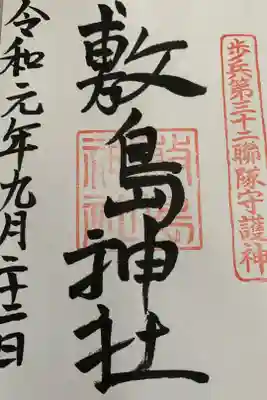 歩兵第三十二聯隊守護神
敷島神社
敷島神社
令和元年九月二十二日